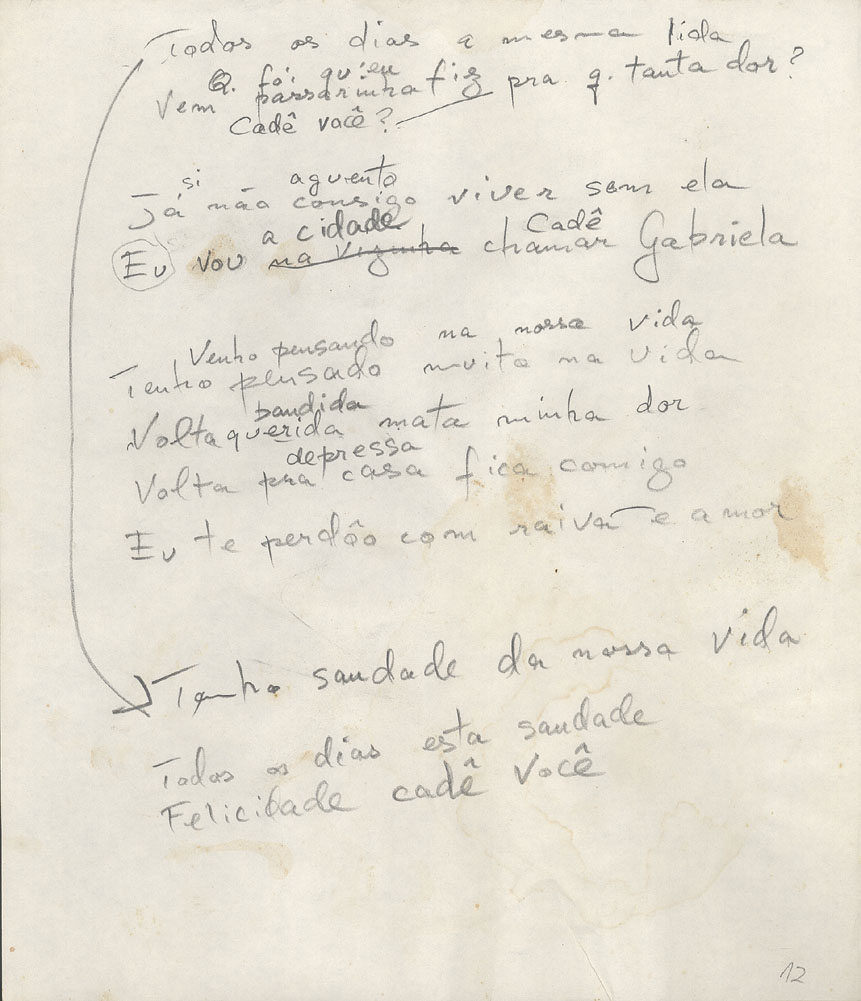 Todos os dias a mesma lida
Q. foi qu'eu
Vem passarinha fiz pra q. tanta dor?
Cadê você?
si aguento
Já não consigo viver sem ela
a cidade Cadê
Eu vou na vizinha chamar Gabriela
Venho pensando na nossa vida
Tenho pensado muito na vida
bandida
Volta querida mata minha dor
depressa
Volta pra casa fica comigo
Eu te perdôo com raiva e amor
Tenho saudade da nossa vida
Todos os dias esta saudade
Felicidade cadê você
12